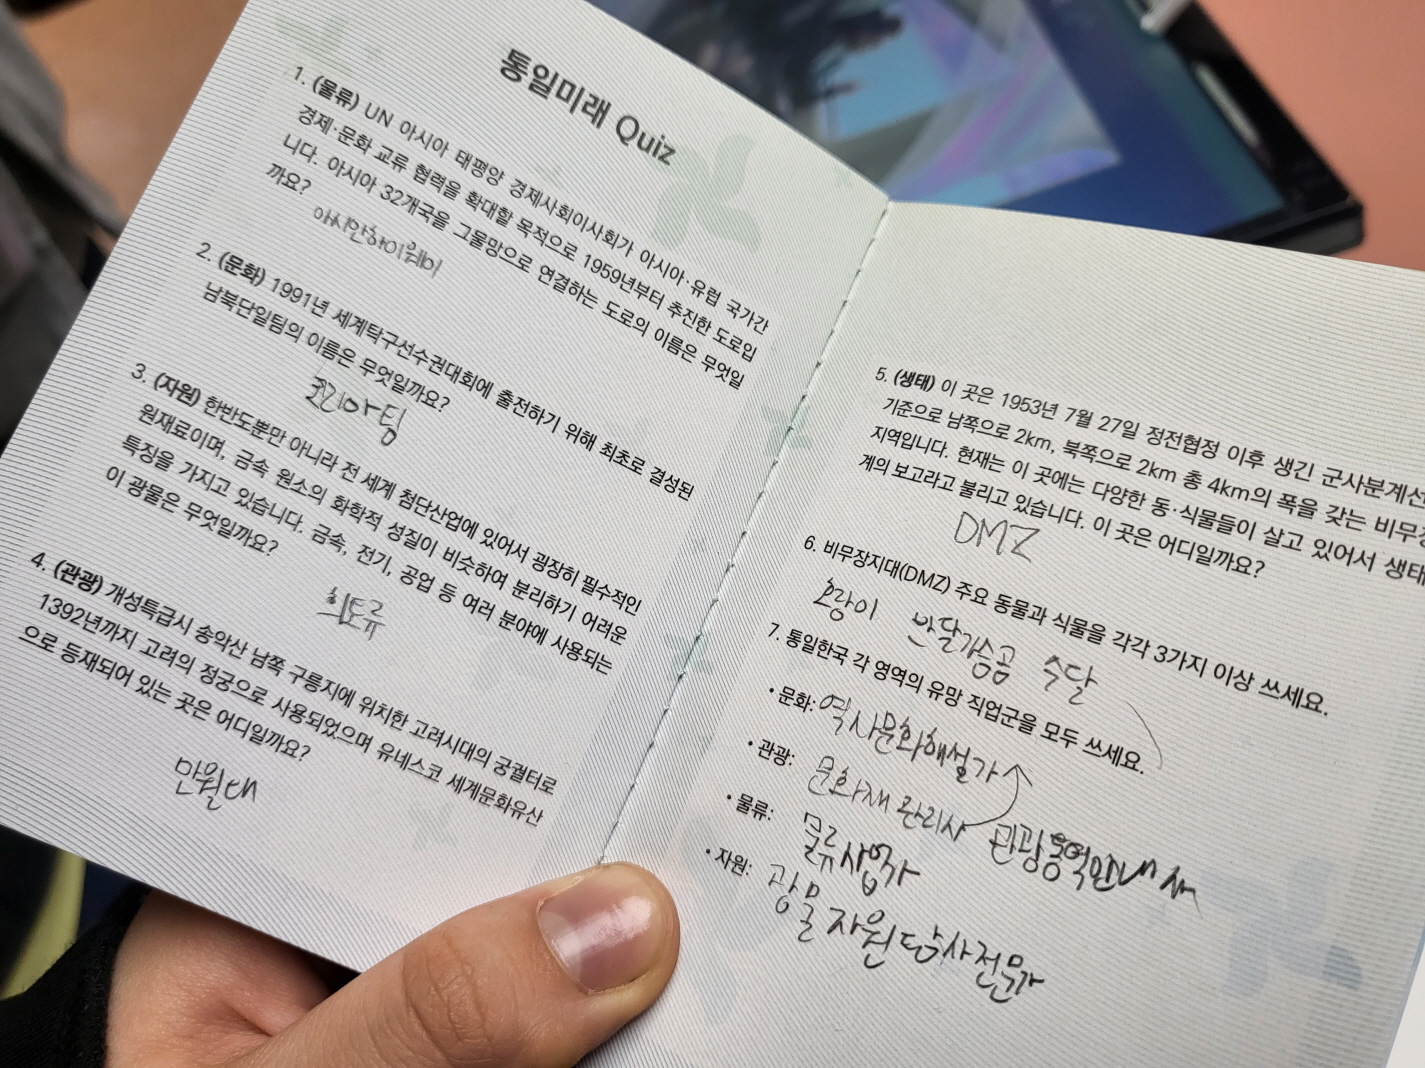 통일미래 Quiz
1. (물류) UN 아시아 태평양 경제사회이사회가 아시아·유럽 국가간
경제·문화 교류 협력을 확대할 목적으로 1959년부터 추진한 도로입
니다. 아시아 32개국을 그물망으로 연결하는 도로의 이름은 무엇일
까요?
아시안하이웨이
2. (문화) 1991년 세계탁구선수권대회에 출전하기 위해 최초로 결성된
남북단일팀의 이름은 무엇일까요?
코리아팀
3. (자원) 한반도뿐만 아니라 전 세계 첨단산업에 있어서 굉장히 필수적인
원재료이며, 금속 원소의 화학적 성질이 비슷하여 분리하기 어려운
특징을 가지고 있습니다. 금속, 전기, 공업 등 여러 분야에 사용되는
이 광물은 무엇일까요?
희토류
4. (관광) 개성특급시 송악산 남쪽 구릉지에 위치한 고려시대의 궁궐터로
1392년까지 고려의 정궁으로 사용되었으며 유네스코 세계문화유산
으로 등재되어 있는 곳은 어디일까요?
만월대
5. (생태) 이 곳은 1953년 7월 27일 정전협정 이후 생긴 군사분계선
기준으로 남쪽으로 2km, 북쪽으로 2km 총 4km의 폭을 갖는 비무장
지역입니다. 현재는 이 곳에는 다양한 동·식물들이 살고 있어서 생태
계의 보고라고 불리고 있습니다. 이 곳은 어디일까요?
DMZ
6. 비무장지대(DMZ) 주요 동물과 식물을 각각 3가지 이상 쓰세요.
호랑이 반달가슴곰 수달
7. 통일한국 각 영역의 유망 직업군을 모두 쓰세요.
• 문화: 역사문화해설가
• 관광: 문화재 관리사 관광통역안내사
• 물류: 물류사업가
• 자원: 광물자원탐사전문가